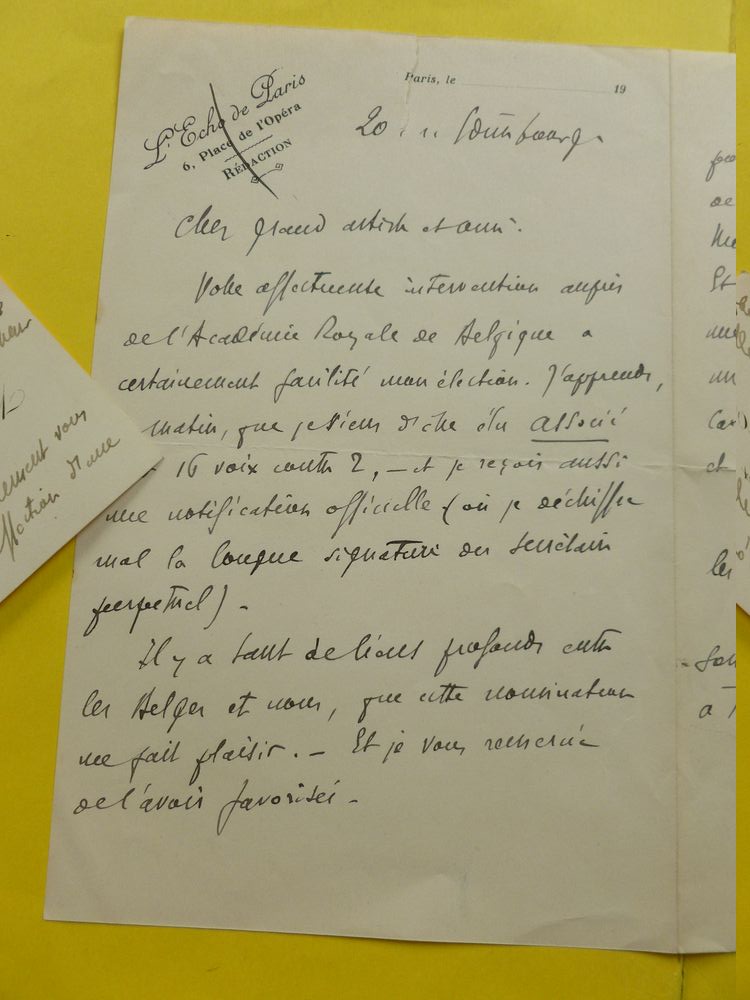 L'Echo de Paris
6, Place de l'Opéra
RÉDACTION
Paris, le 19
20
Cher grand artiste et ami.
Votre affectueuse intervention auprès
de l'Académie Royale de Belgique a
certainement facilité mon élection. J'apprends,
matin, que je viens d'être élu associé
16 voix contre 2, — et je reçois aussi
une notification officielle (où je déchiffre
mal la longue signature du secrétaire
perpétuel) —
Il y a tant de liens profonds entre
les Belges et nous, que cette nomination
me fait plaisir. — Et je vous remercie
de l'avoir favorisée —
vous
d'une
et
les
à